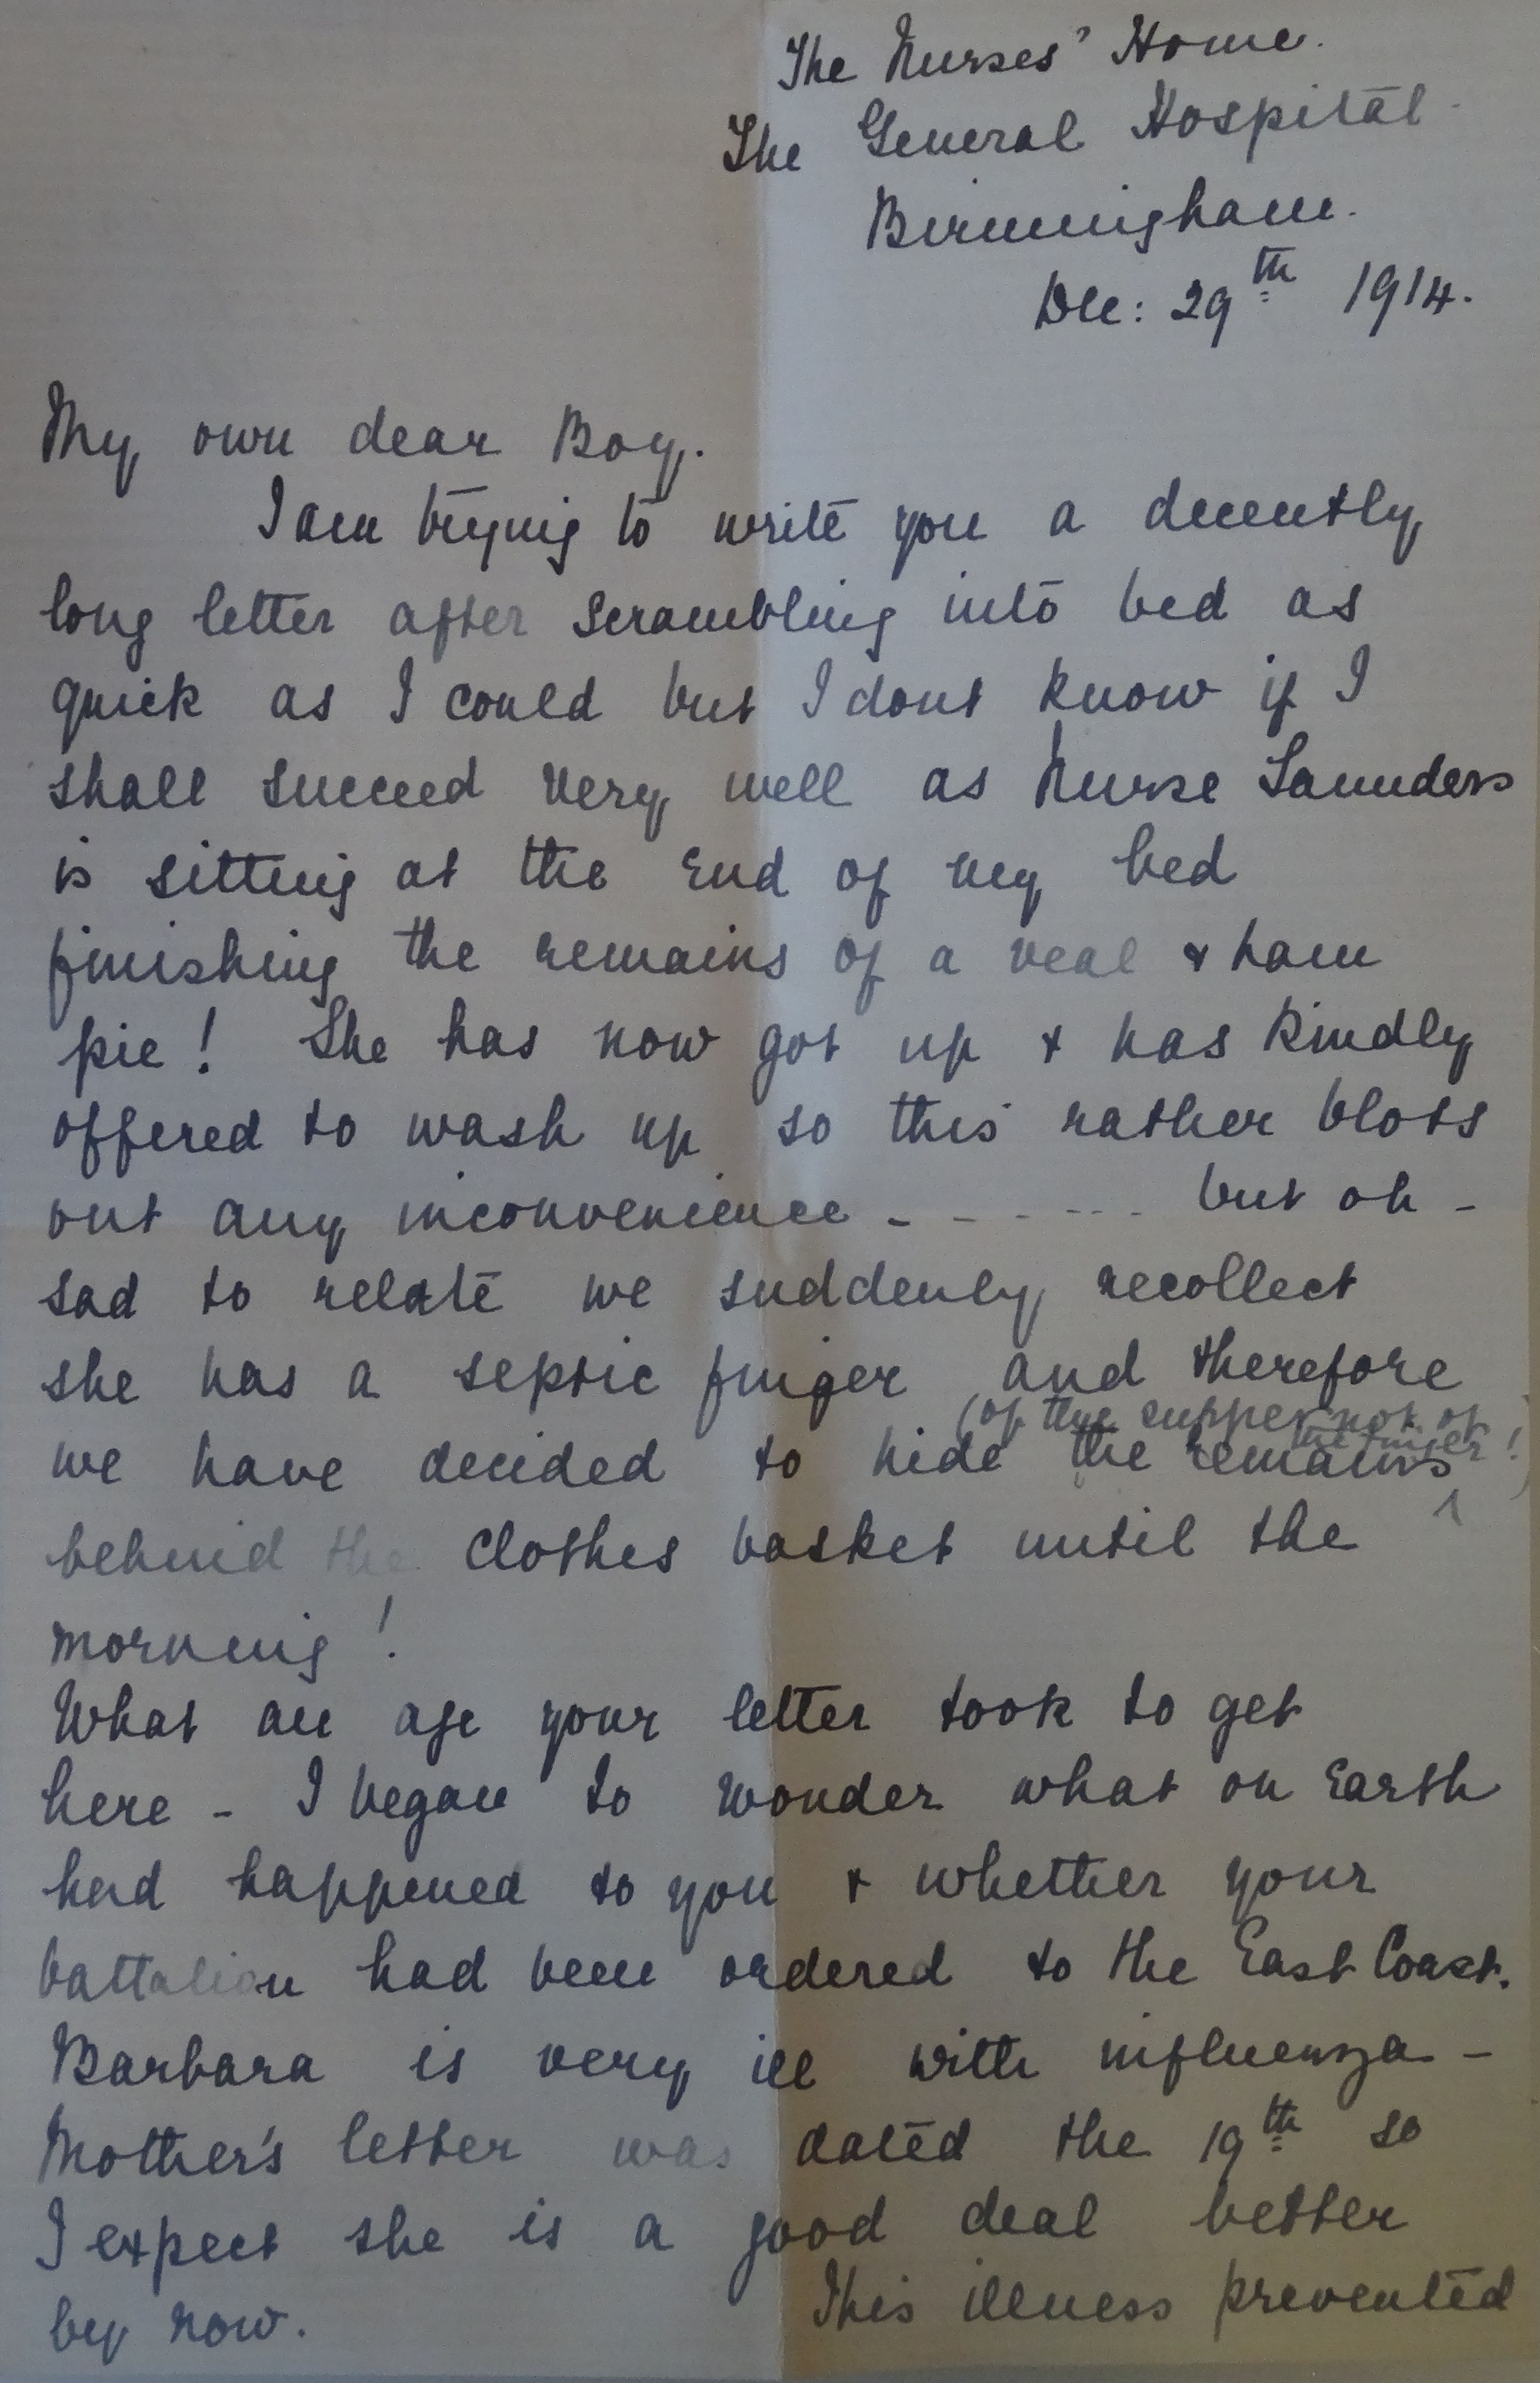 The Nurses' Home.
The General Hospital
Birmingham.
Dec: 29th 1914.
My own dear Boy.
I am trying to write you a decently
long letter after scrambling into bed as
quick as I could but I dont know if I
shall succeed very well as Nurse Saunders
is sitting at the end of my bed
finishing the remains of a veal & ham
pie! She has now got up & has kindly
offered to wash up so this rather blots
out any inconvenience - - - - - - - but oh -
sad to relate we suddenly recollect
she has a septic finger and therefore
(of the supper not of
the finger!)
we have decided to hide the remains
behind the clothes basket until the
morning!
What an age your letter took to get
here - I began to wonder what on Earth
had happened to you & whether your
battalion had been ordered to the East Coast.
Barbara is very ill with influenza -
Mother's letter was dated the 19th so
I expect she is a good deal better
by now. This illness prevented